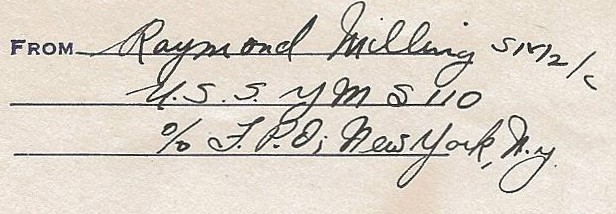 FROM Raymond Milling SM2/c
U.S.S. YMS 110
c/o F.P.O; New York, N.Y.